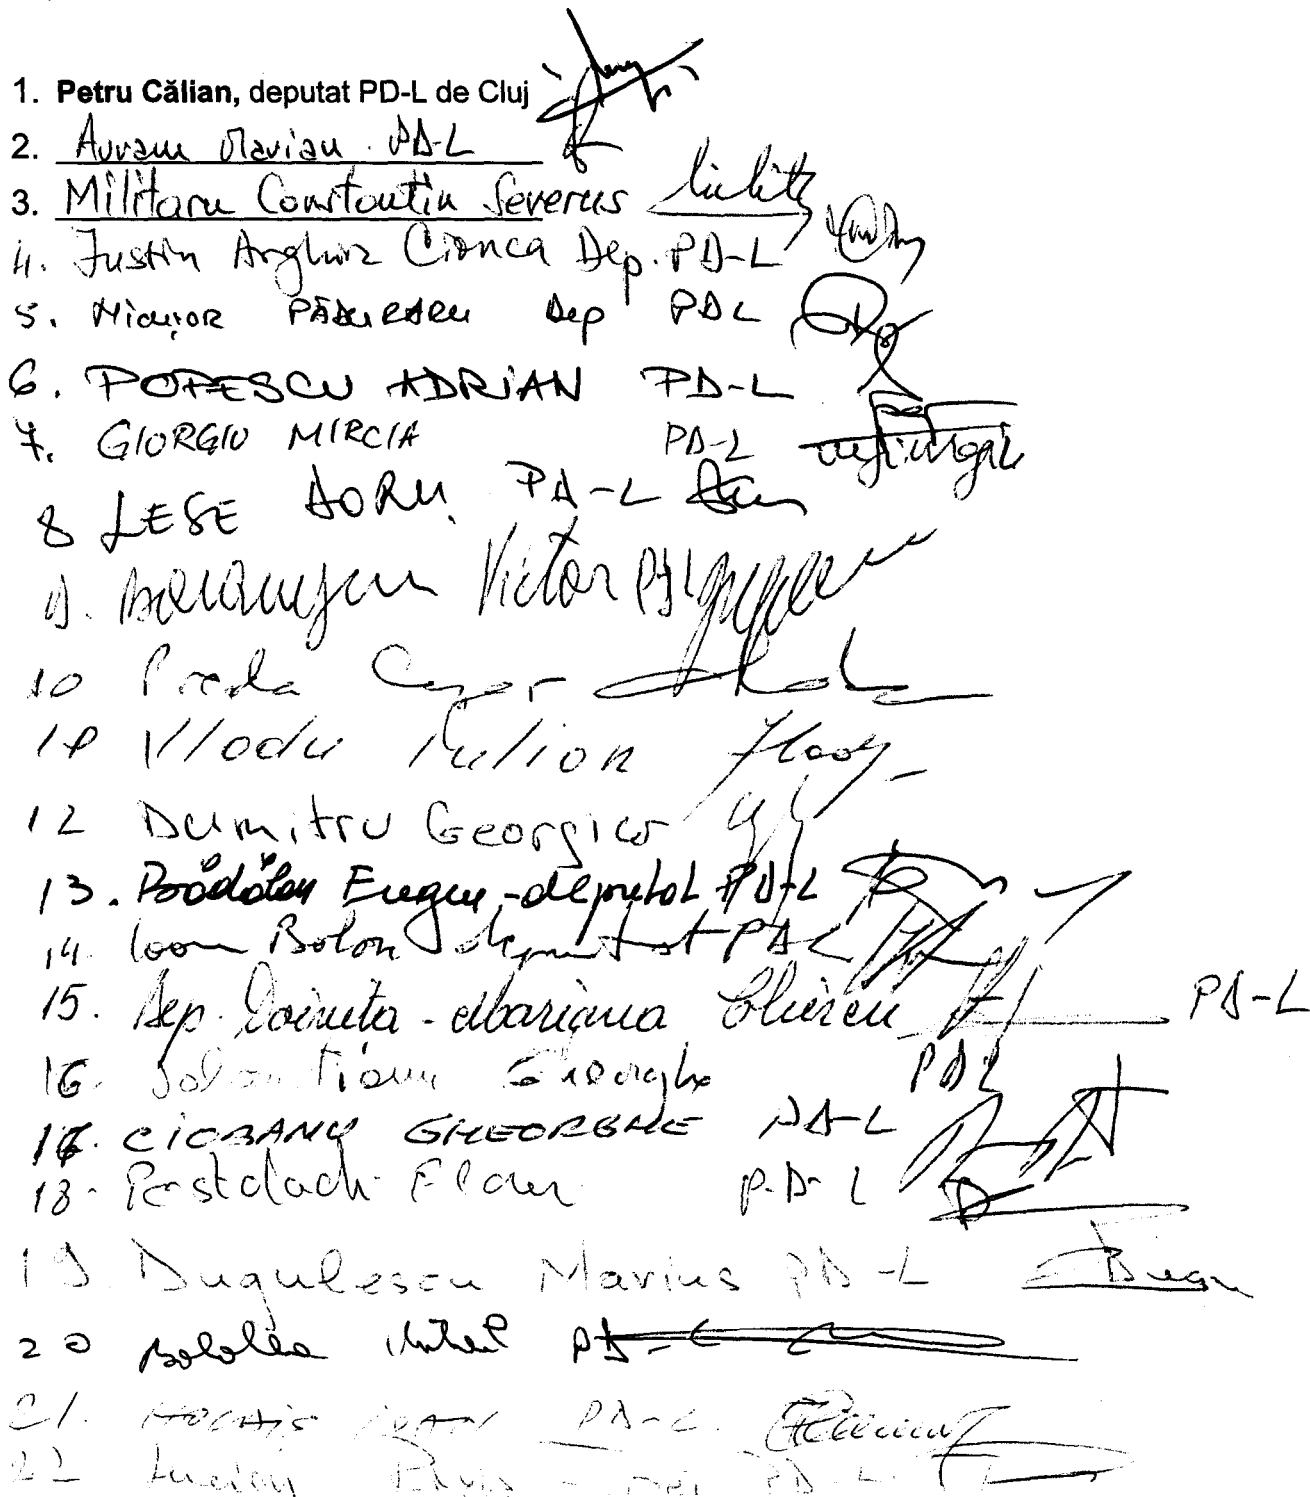 1. Petru Călian, deputat PD-L de Cluj
2. Avram Marian PD-L
3. Militaru Constantin Severus
4. Justin Arghir Cionca Dep. PD-L
5. Nicușor PĂDURARU Dep PDL
6. POPESCU ADRIAN PD-L
7. GIORGIU MIRCIA PD-L
8 LESE DORU PD-L
9. Victor PDL
10 Preda Cezar
11 Vladu Iulian
12 Dumitru Georgica
13. Bădălan Eugen - deputat PD-L
14. Ioan Bolon deputat PD-L
15. Dep. Doinița - Mariana Chircu PD-L
16. Gheorghe PDL
17. CIOBANU GHEORGHE PD-L
18. Postolachi Florin P.D-L
19 Dugulescu Marius PD-L
20 PD-L
21. PD-L
22 Lucian PD-L